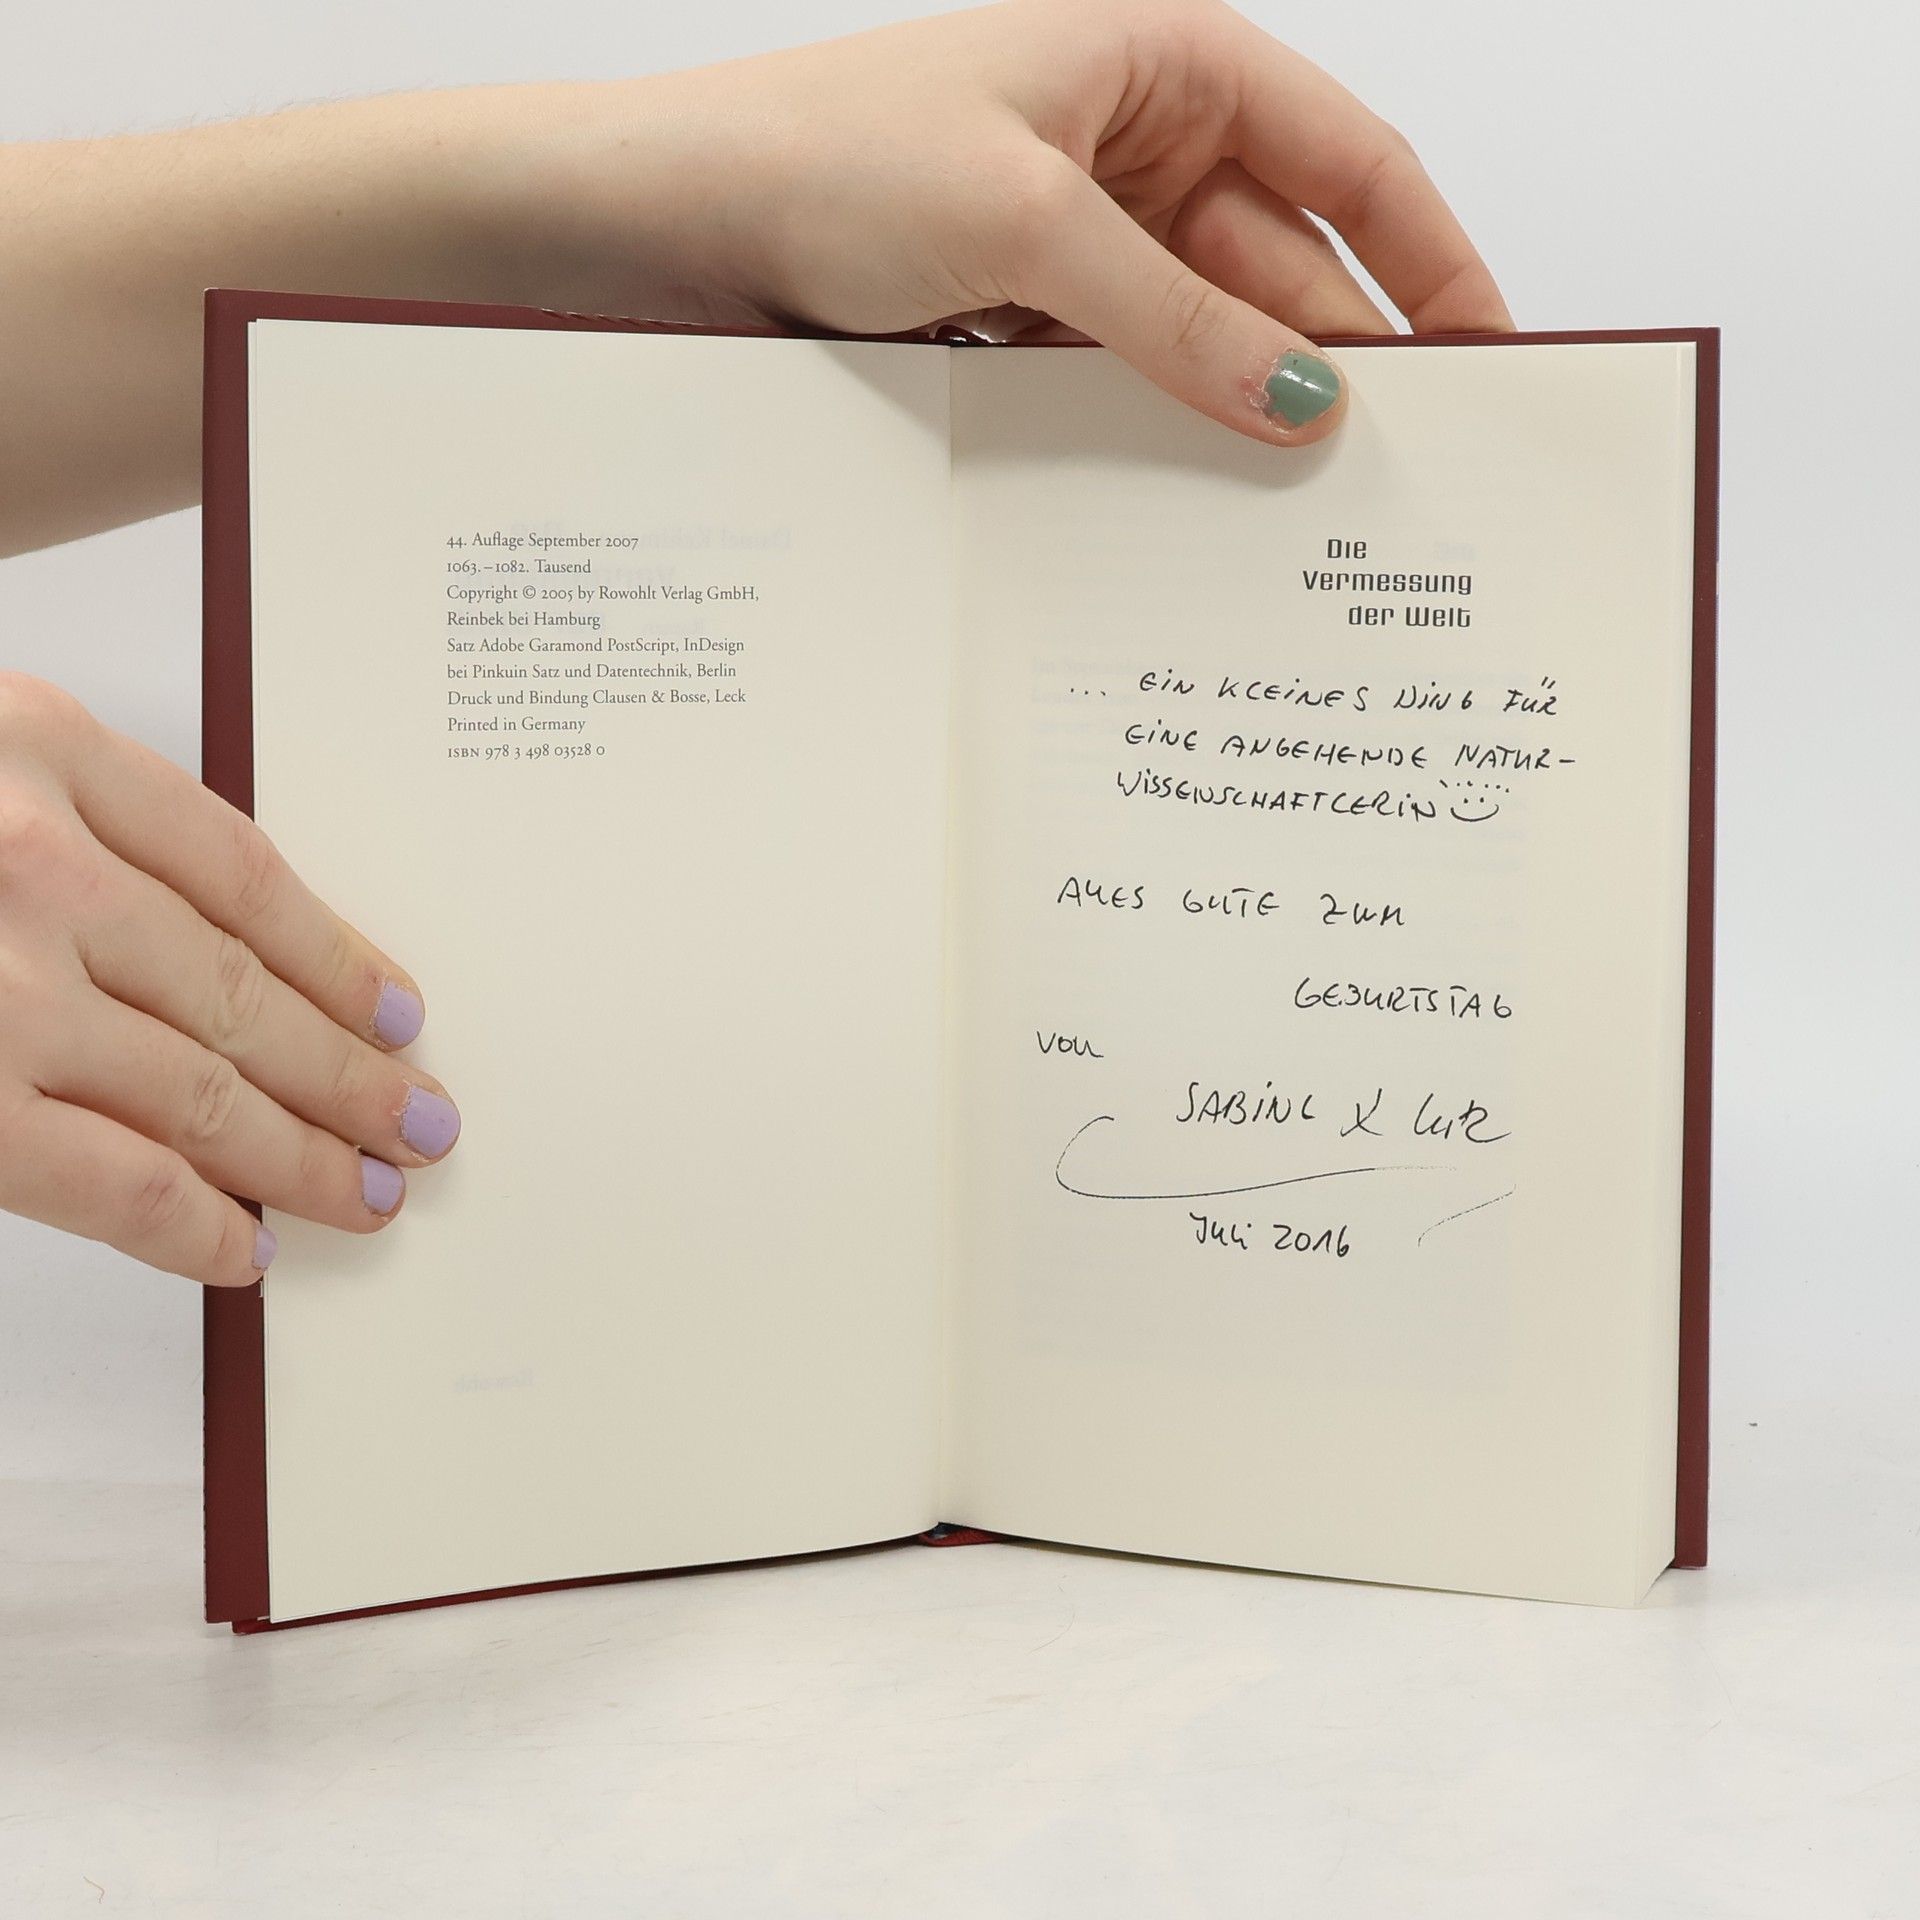 44. Auflage September 2007
1063.–1082. Tausend
Copyright © 2005 by Rowohlt Verlag GmbH,
Reinbek bei Hamburg
Satz Adobe Garamond PostScript, InDesign
bei Pinkuin Satz und Datentechnik, Berlin
Druck und Bindung Clausen & Bosse, Leck
Printed in Germany
ISBN 978 3 498 03528 0
Die
Vermessung
der Welt
... EIN KLEINES DING FÜR
EINE ANGEHENDE NATUR-
WISSENSCHAFTLERIN
ALLES GUTE ZUM
GEBURTSTAG
von
SABINE
Juli 2016